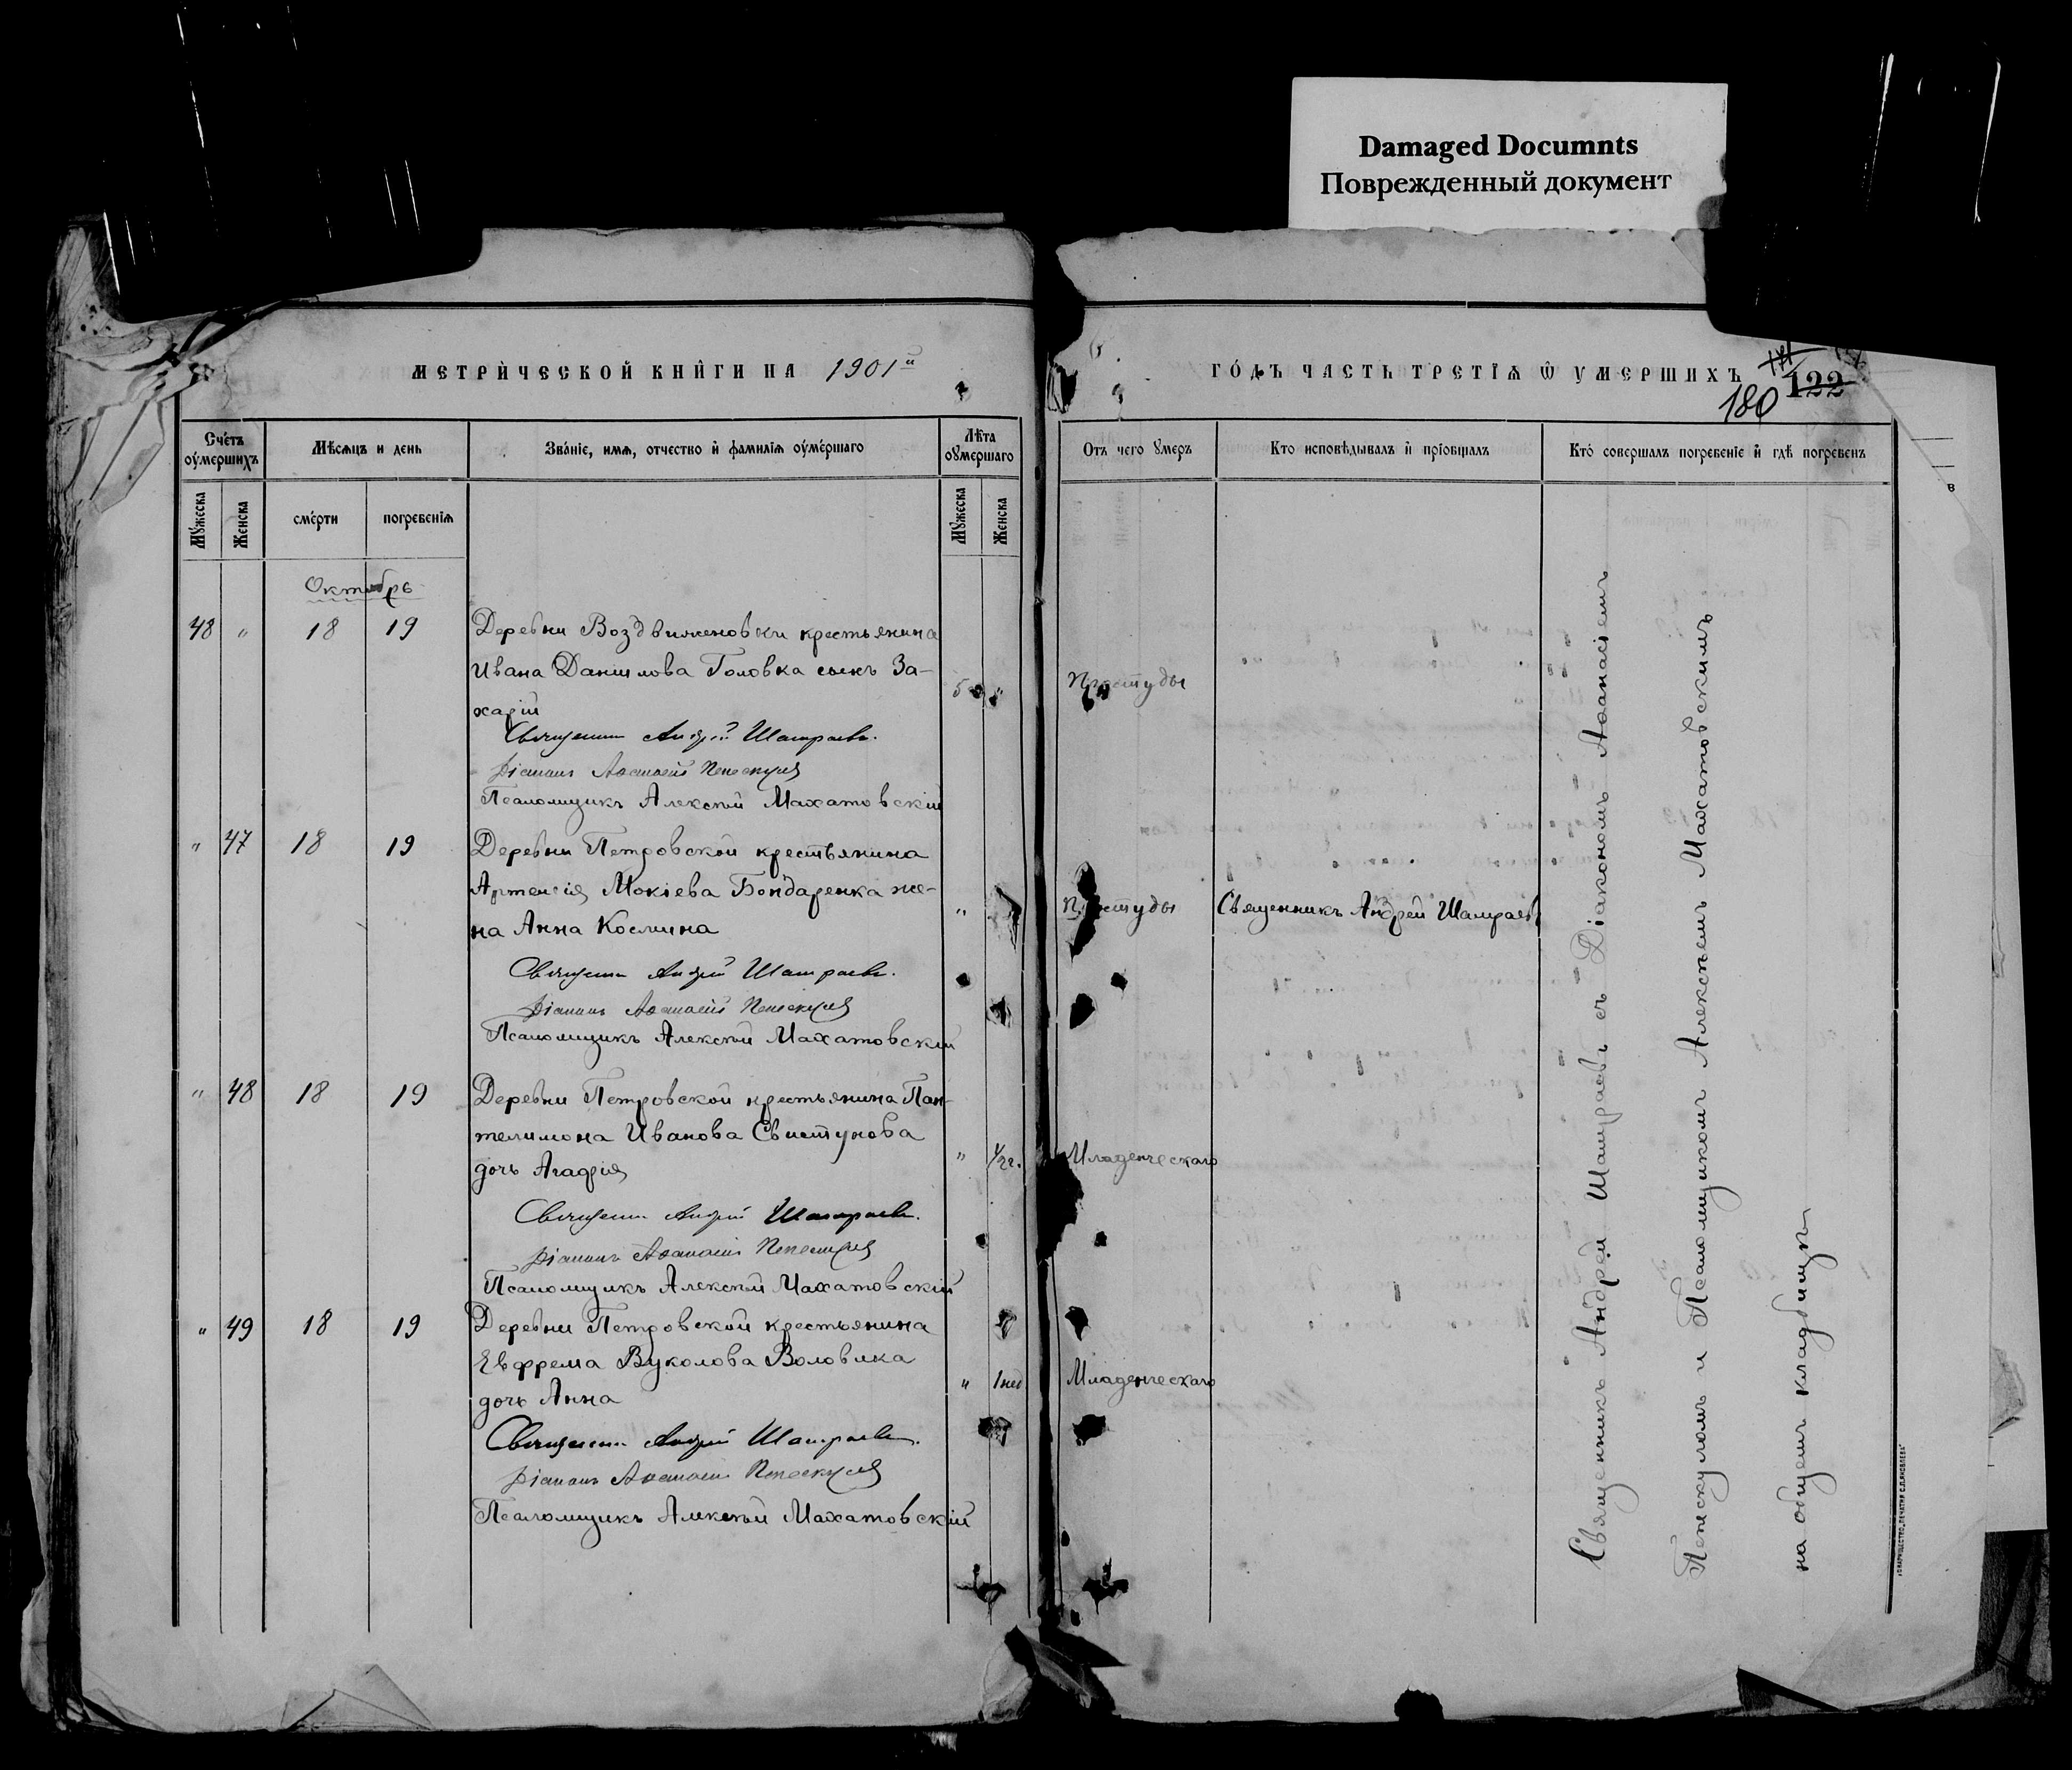 Damaged Documnts
Поврежденный документ
МЕТРИЧЕСКОЙ КНИГИ НА 1901й
ГОДЪ ЧАСТЬ ТРЕТІЯ Ѿ УМЕРШИХЪ
122
180
Счетъ оумершихъ
Мѣсяцъ и день
Званіе, имя, отчество и фамилія оумершаго
Лѣта оумершаго
Отъ чего умеръ
Кто исповѣдывалъ и пріобщалъ
Кто совершалъ погребеніе и гдѣ погребенъ
Мужеска
Женска
смерти
погребенія
Мужеска
Женска
Октябрь
48 " 18 19 Деревни Воздвиженовки крестьянина
Ивана Данилова Головка сынъ За-
харій
5 " Простуды
Священникъ Андрей Шамраевъ.
Діаконъ Аѳанасій Пенескулъ
Псаломщикъ Алексѣй Махатовскій
" 47 18 19 Деревни Петровской крестьянина
Артемія Мокіева Бондаренка же-
на Анна Космина
" Простуды Священникъ Андрей Шамраевъ
Священникъ Андрей Шамраевъ.
Діаконъ Аѳанасій Пенескулъ
Псаломщикъ Алексѣй Махатовскій
" 48 18 19 Деревни Петровской крестьянина Пан-
телимона Иванова Свистунова
дочь Агафія
" 1/2г. Младенческаго
Священникъ Андрей Шамраевъ.
Діаконъ Аѳанасій Пенескулъ
Псаломщикъ Алексѣй Махатовскій
" 49 18 19 Деревни Петровской крестьянина
Евфрема Вуколова Воловика
дочь Анна
" 1нед Младенческаго
Священникъ Андрей Шамраевъ.
Діаконъ Аѳанасій Пенескулъ
Псаломщикъ Алексѣй Махатовскій
Священникъ Андрей Шамраевъ съ Діакономъ Аѳанасіемъ
Пенескуломъ и Псаломщикомъ Алексѣемъ Махатовскимъ
на общемъ кладбищѣ
ТОВАРИЩЕСТВО „ПЕЧАТНЯ С.П.ЯКОВЛЕВА"
в